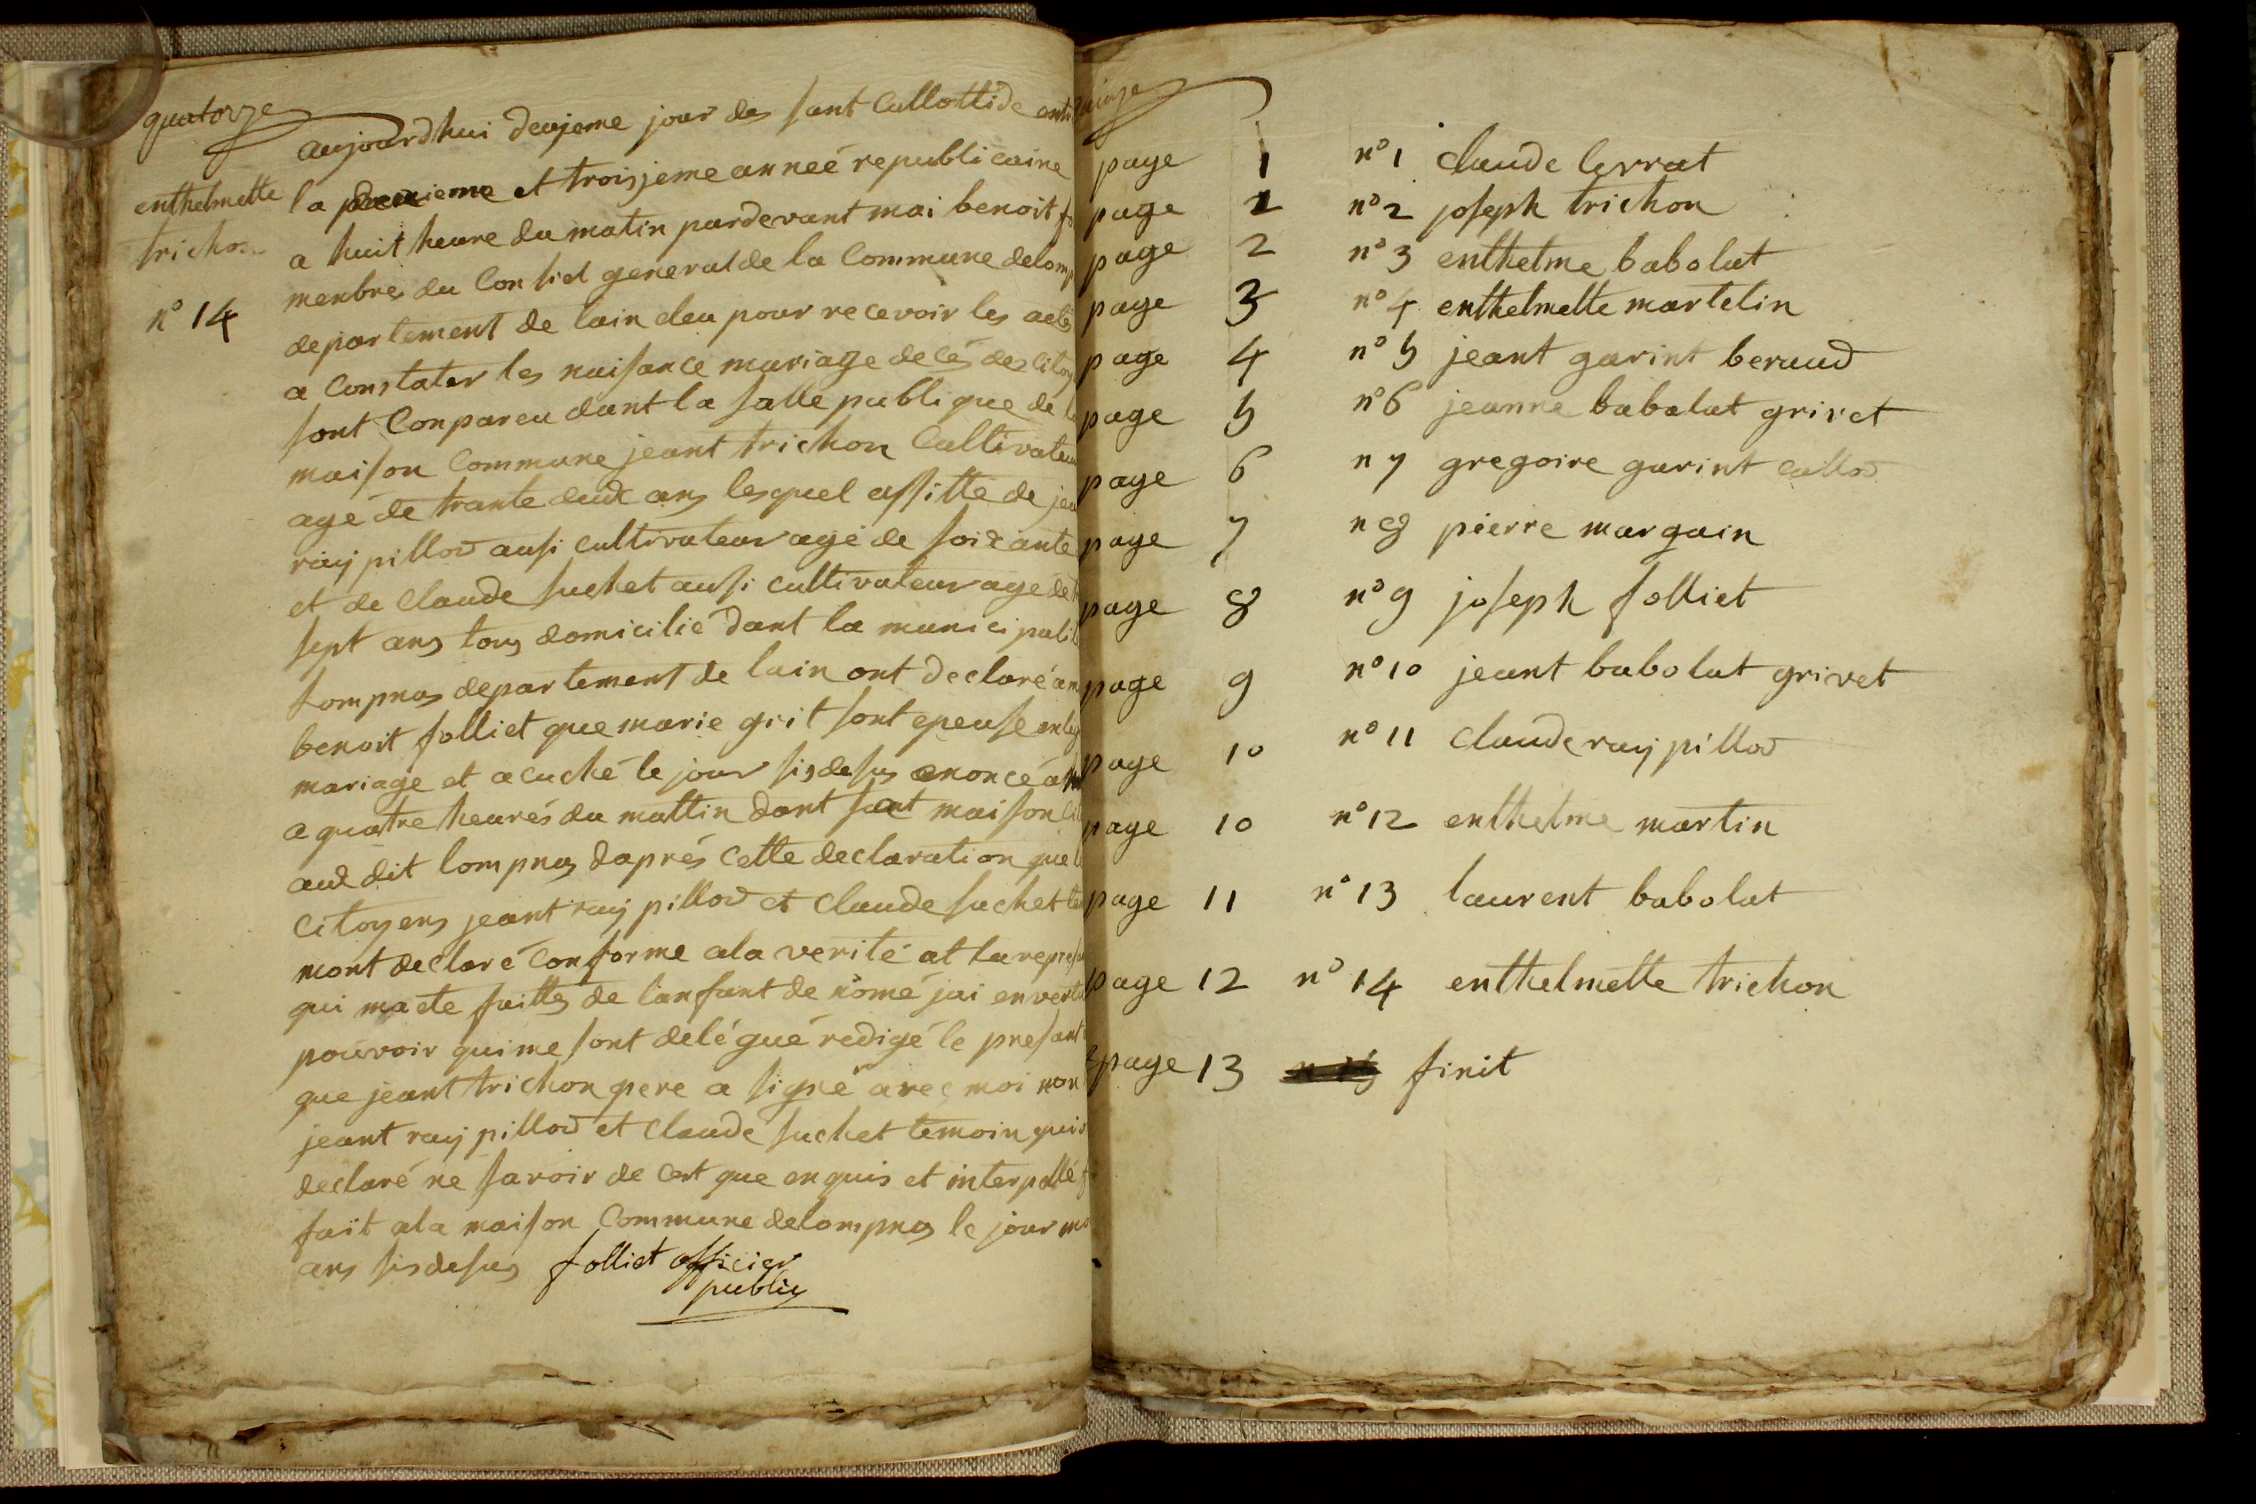 quatorze
enthelmette
trichon
n° 14
aujourdhui deujeme jour des sant Cullottide entre
la deuxieme et troisjeme anneé republicaine
a huit heure du matin pardevant moi benoit
menbres du Consiel general de la Commune de lomp
departement de lain eleu pour recevoir les actes
a Constater les naisance mariage decés des Citoy
sont Conpareu dant la salle publique de la
maison Commune jeant trichon Cultivateur
agé de trante deux ans lesquel assitté de jea
ray pillod ausi cultivateur agé de soixante
et de Claude suchet ausi cultivateur age de
sept ans tous domicilié dant la municipali
lompnas departement de lain ont declaré a
benoit folliet que marie grit sont epeuse en
mariage et acuché le jour sisdesus enoncé a
a quatre heurés du mattin dant sant maison
aux dit lompnas daprés cette declaration que
Citoyens jeant ray pillod et Claude suchet
mont declaré Conforme a la verité at la repres
qui ma ete faittes de lanfant denomé jai en vert
pouvoir qui me sont delégué redigé le presant
que jeant trichon pere a signé avec moi non
jeant ray pillod et Claude suchet temoin qui
declaré ne savoir de cert que enquis et interpellé
fait a la maison Commune de lompnas le jour
ans sisdesus folliet officier
publiq
quinze
page 1 n° 1 claude Cerrat
page 2 n° 2 joseph trichon
page 2 n° 3 enthelme babolat
page 3 n° 4 enthelmette martelin
page 4 n° 5 jeant garint beraud
page 5 n° 6 jeanne babolat grivet
page 6 n 7 gregoire garint callod
page 7 n 8 pierre marguin
page 8 n° 9 joseph folliet
page 9 n° 10 jeant babolat grivet
page 10 n° 11 Claude ray pillod
page 10 n° 12 enthelme martin
page 11 n° 13 laurent babolat
page 12 n° 14 enthelmette trichon
page 13 finit